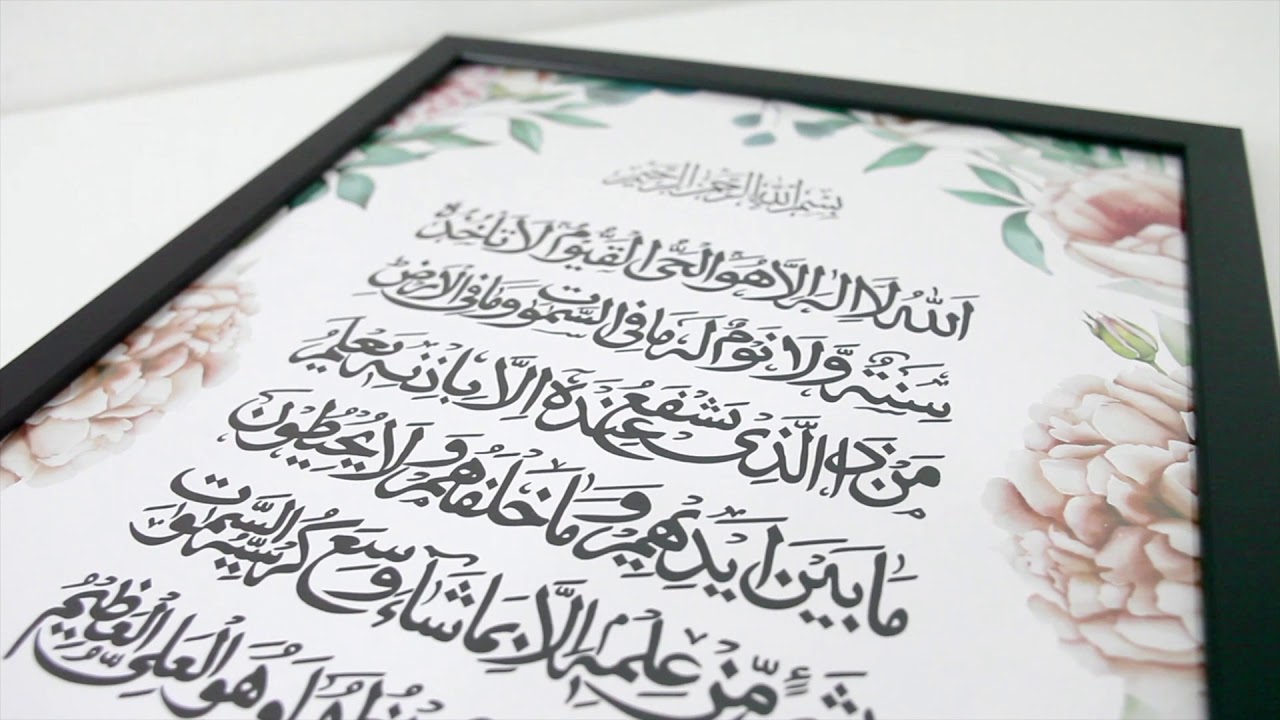 بِسْمِ اللّٰهِ الرَّحْمٰنِ الرَّحِيْمِ
اَللّٰهُ لَآ اِلٰهَ اِلَّا هُوَ الْحَىُّ الْقَيُّوْمُ لَا تَاْخُذُهٗ
سِنَةٌ وَّلَا نَوْمٌ لَهٗ مَا فِى السَّمٰوٰتِ وَمَا فِى الْاَرْضِ
مَنْ ذَا الَّذِىْ يَشْفَعُ عِنْدَهٗٓ اِلَّا بِاِذْنِهٖ يَعْلَمُ
مَا بَيْنَ اَيْدِيْهِمْ وَمَا خَلْفَهُمْ وَلَا يُحِيْطُوْنَ
مِّنْ عِلْمِهٖٓ اِلَّا بِمَا شَآءَ وَسِعَ كُرْسِيُّهُ السَّمٰوٰتِ
وَهُوَ الْعَلِىُّ الْعَظِيْمُ